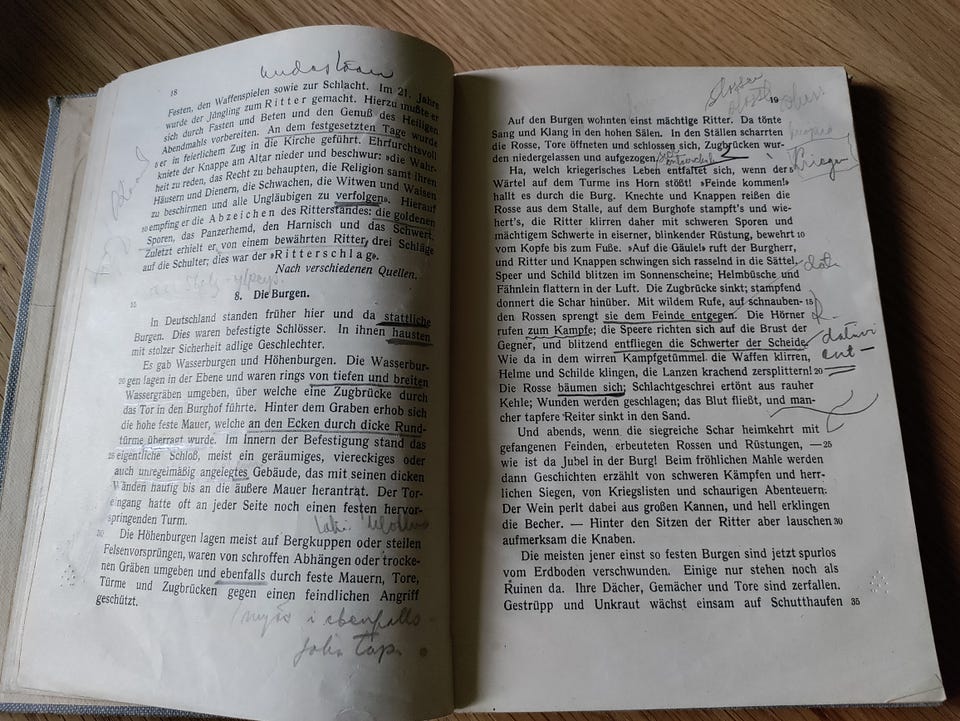 18
Festen, den Waffenspielen sowie zur Schlacht. Im 21. Jahre
wurde der Jüngling zum Ritter gemacht. Hierzu mußte er
sich durch Fasten und Beten und den Genuß des Heiligen
Abendmahls vorbereiten. An dem festgesetzten Tage wurde
5 er in feierlichem Zug in die Kirche geführt. Ehrfurchtsvoll
kniete der Knappe am Altar nieder und beschwur: »die Wahr-
heit zu reden, das Recht zu behaupten, die Religion samt ihren
Häusern und Dienern, die Schwachen, die Witwen und Waisen
zu beschirmen und alle Ungläubigen zu verfolgen«. Hierauf
10 empfing er die Abzeichen des Ritterstandes: die goldenen
Sporen, das Panzerhemd, den Harnisch und das Schwert.
Zuletzt erhielt er von einem bewährten Ritter drei Schläge
auf die Schulter; dies war der »Ritterschlag«.
Nach verschiedenen Quellen.
8. Die Burgen.
15 In Deutschland standen früher hier und da stattliche
Burgen. Dies waren befestigte Schlösser. In ihnen hausten
mit stolzer Sicherheit adlige Geschlechter.
Es gab Wasserburgen und Höhenburgen. Die Wasserbur-
20 gen lagen in der Ebene und waren rings von tiefen und breiten
Wassergräben umgeben, über welche eine Zugbrücke durch
das Tor in den Burghof führte. Hinter dem Graben erhob sich
die hohe feste Mauer, welche an den Ecken durch dicke Rund-
türme überragt wurde. Im Innern der Befestigung stand das
25 eigentliche Schloß, meist ein geräumiges, viereckiges oder
auch unregelmäßig angelegtes Gebäude, das mit seinen dicken
Wänden häufig bis an die äußere Mauer herantrat. Der Tor-
eingang hatte oft an jeder Seite noch einen festen hervor-
springenden Turm.
30 Die Höhenburgen lagen meist auf Bergkuppen oder steilen
Felsenvorsprüngen, waren von schroffen Abhängen oder trocke-
nen Gräben umgeben und ebenfalls durch feste Mauern, Tore,
Türme und Zugbrücken gegen einen feindlichen Angriff
geschützt.
myös i ebenfalls
19
Auf den Burgen wohnten einst mächtige Ritter. Da tönte
Sang und Klang in den hohen Sälen. In den Ställen scharrten
die Rosse, Tore öffneten und schlossen sich, Zugbrücken wur-
den niedergelassen und aufgezogen.
Ha, welch kriegerisches Leben entfaltet sich, wenn der 5
Wärtel auf dem Turme ins Horn stößt! »Feinde kommen!«
hallt es durch die Burg. Knechte und Knappen reißen die
Rosse aus dem Stalle, auf dem Burghofe stampft's und wie-
hert's, die Ritter klirren daher mit schweren Sporen und
mächtigem Schwerte in eiserner, blinkender Rüstung, bewehrt 10
vom Kopfe bis zum Fuße. »Auf die Gäule!« ruft der Burgherr,
und Ritter und Knappen schwingen sich rasselnd in die Sättel,
Speer und Schild blitzen im Sonnenscheine; Helmbüsche und
Fähnlein flattern in der Luft. Die Zugbrücke sinkt; stampfend
donnert die Schar hinüber. Mit wildem Rufe, auf schnauben- 15
den Rossen sprengt sie dem Feinde entgegen. Die Hörner
rufen zum Kampfe; die Speere richten sich auf die Brust der
Gegner, und blitzend entfliegen die Schwerter der Scheide.
Wie da in dem wirren Kampfgetümmel die Waffen klirren,
Helme und Schilde klingen, die Lanzen krachend zersplittern! 20
Die Rosse bäumen sich; Schlachtgeschrei ertönt aus rauher
Kehle; Wunden werden geschlagen; das Blut fließt, und man-
cher tapfere Reiter sinkt in den Sand.
Und abends, wenn die siegreiche Schar heimkehrt mit
gefangenen Feinden, erbeuteten Rossen und Rüstungen, — 25
wie ist da Jubel in der Burg! Beim fröhlichen Mahle werden
dann Geschichten erzählt von schweren Kämpfen und herr-
lichen Siegen, von Kriegslisten und schaurigen Abenteuern:
Der Wein perlt dabei aus großen Kannen, und hell erklingen
die Becher. — Hinter den Sitzen der Ritter aber lauschen 30
aufmerksam die Knaben.
Die meisten jener einst so festen Burgen sind jetzt spurlos
vom Erdboden verschwunden. Einige nur stehen noch als
Ruinen da. Ihre Dächer, Gemächer und Tore sind zerfallen.
Gestrüpp und Unkraut wächst einsam auf Schutthaufen 35
dat.
R.
dativi
ent-